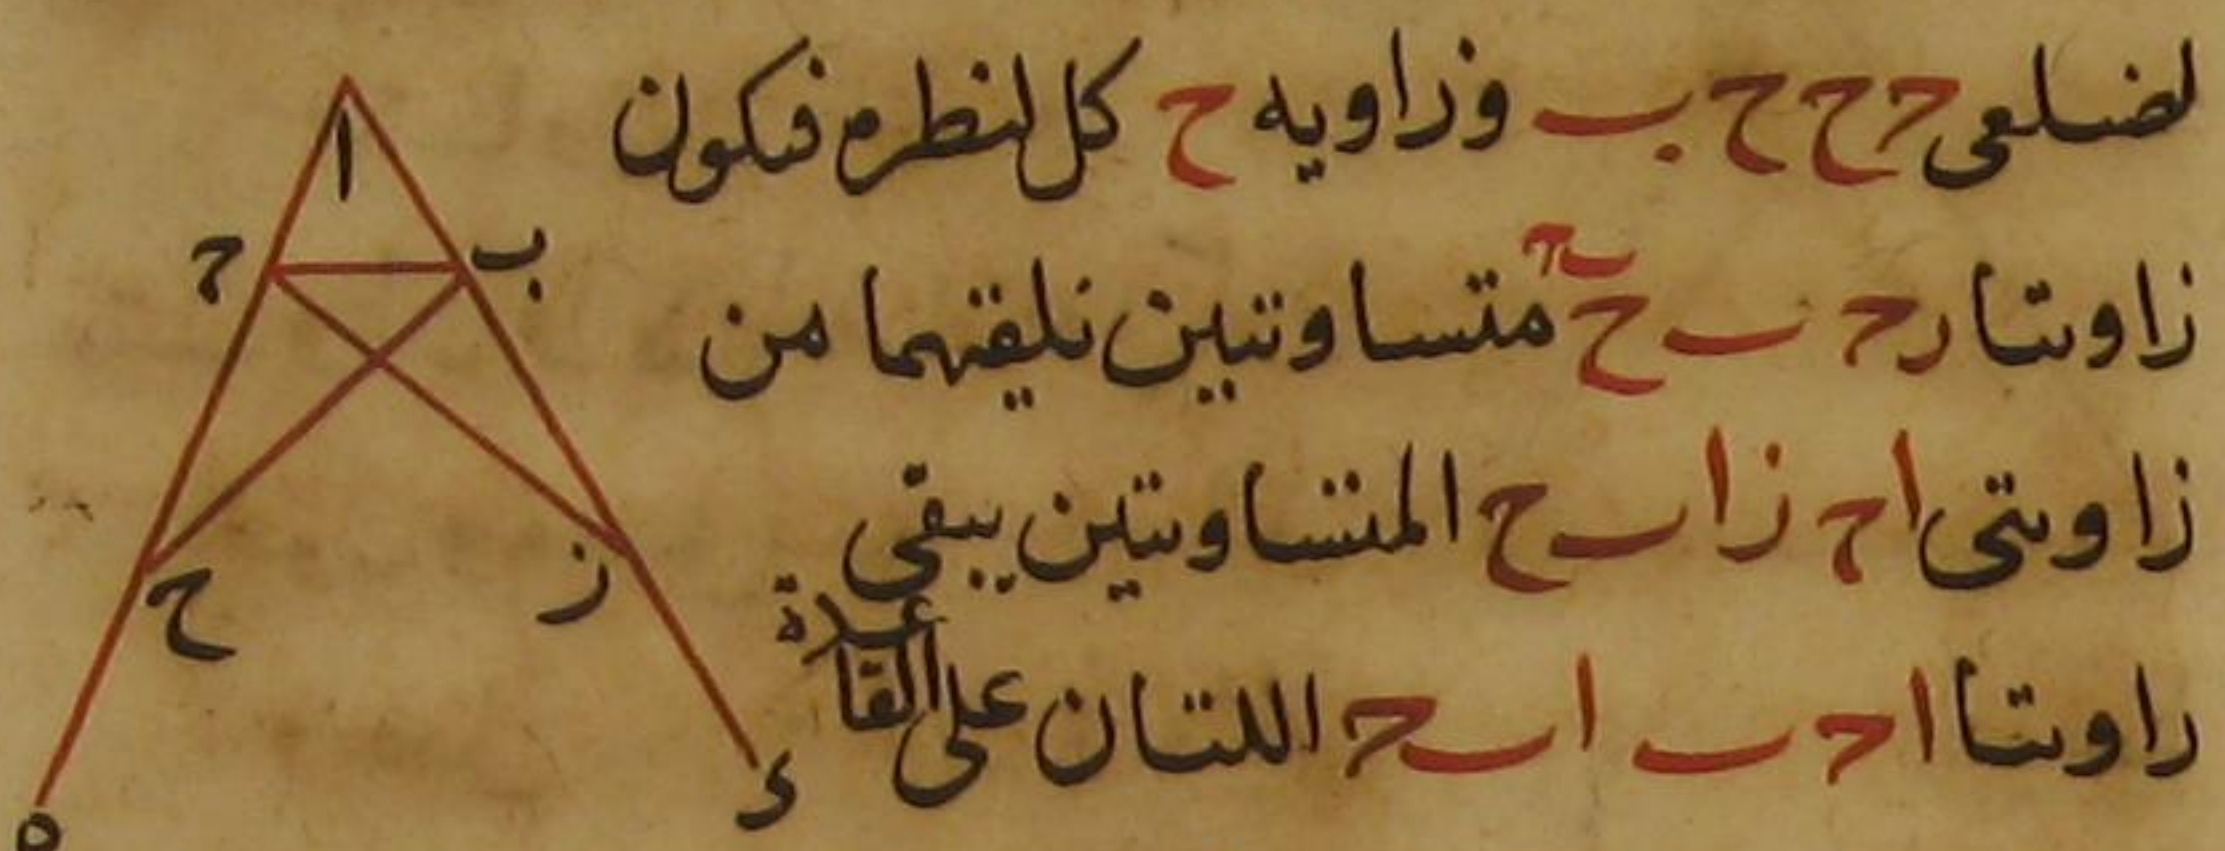 لضلعى حح ح ب وزاويه ح كل لنظره فيكون
زاويتا رح ب ح ب ح متساويتين نلقيهما من
زاويتى اح ز اب ح المتساويتين يبقى
زاويتا اح ب اب ح اللتان على القاعدة
ا
ب
ح
ز
ح
د
ه